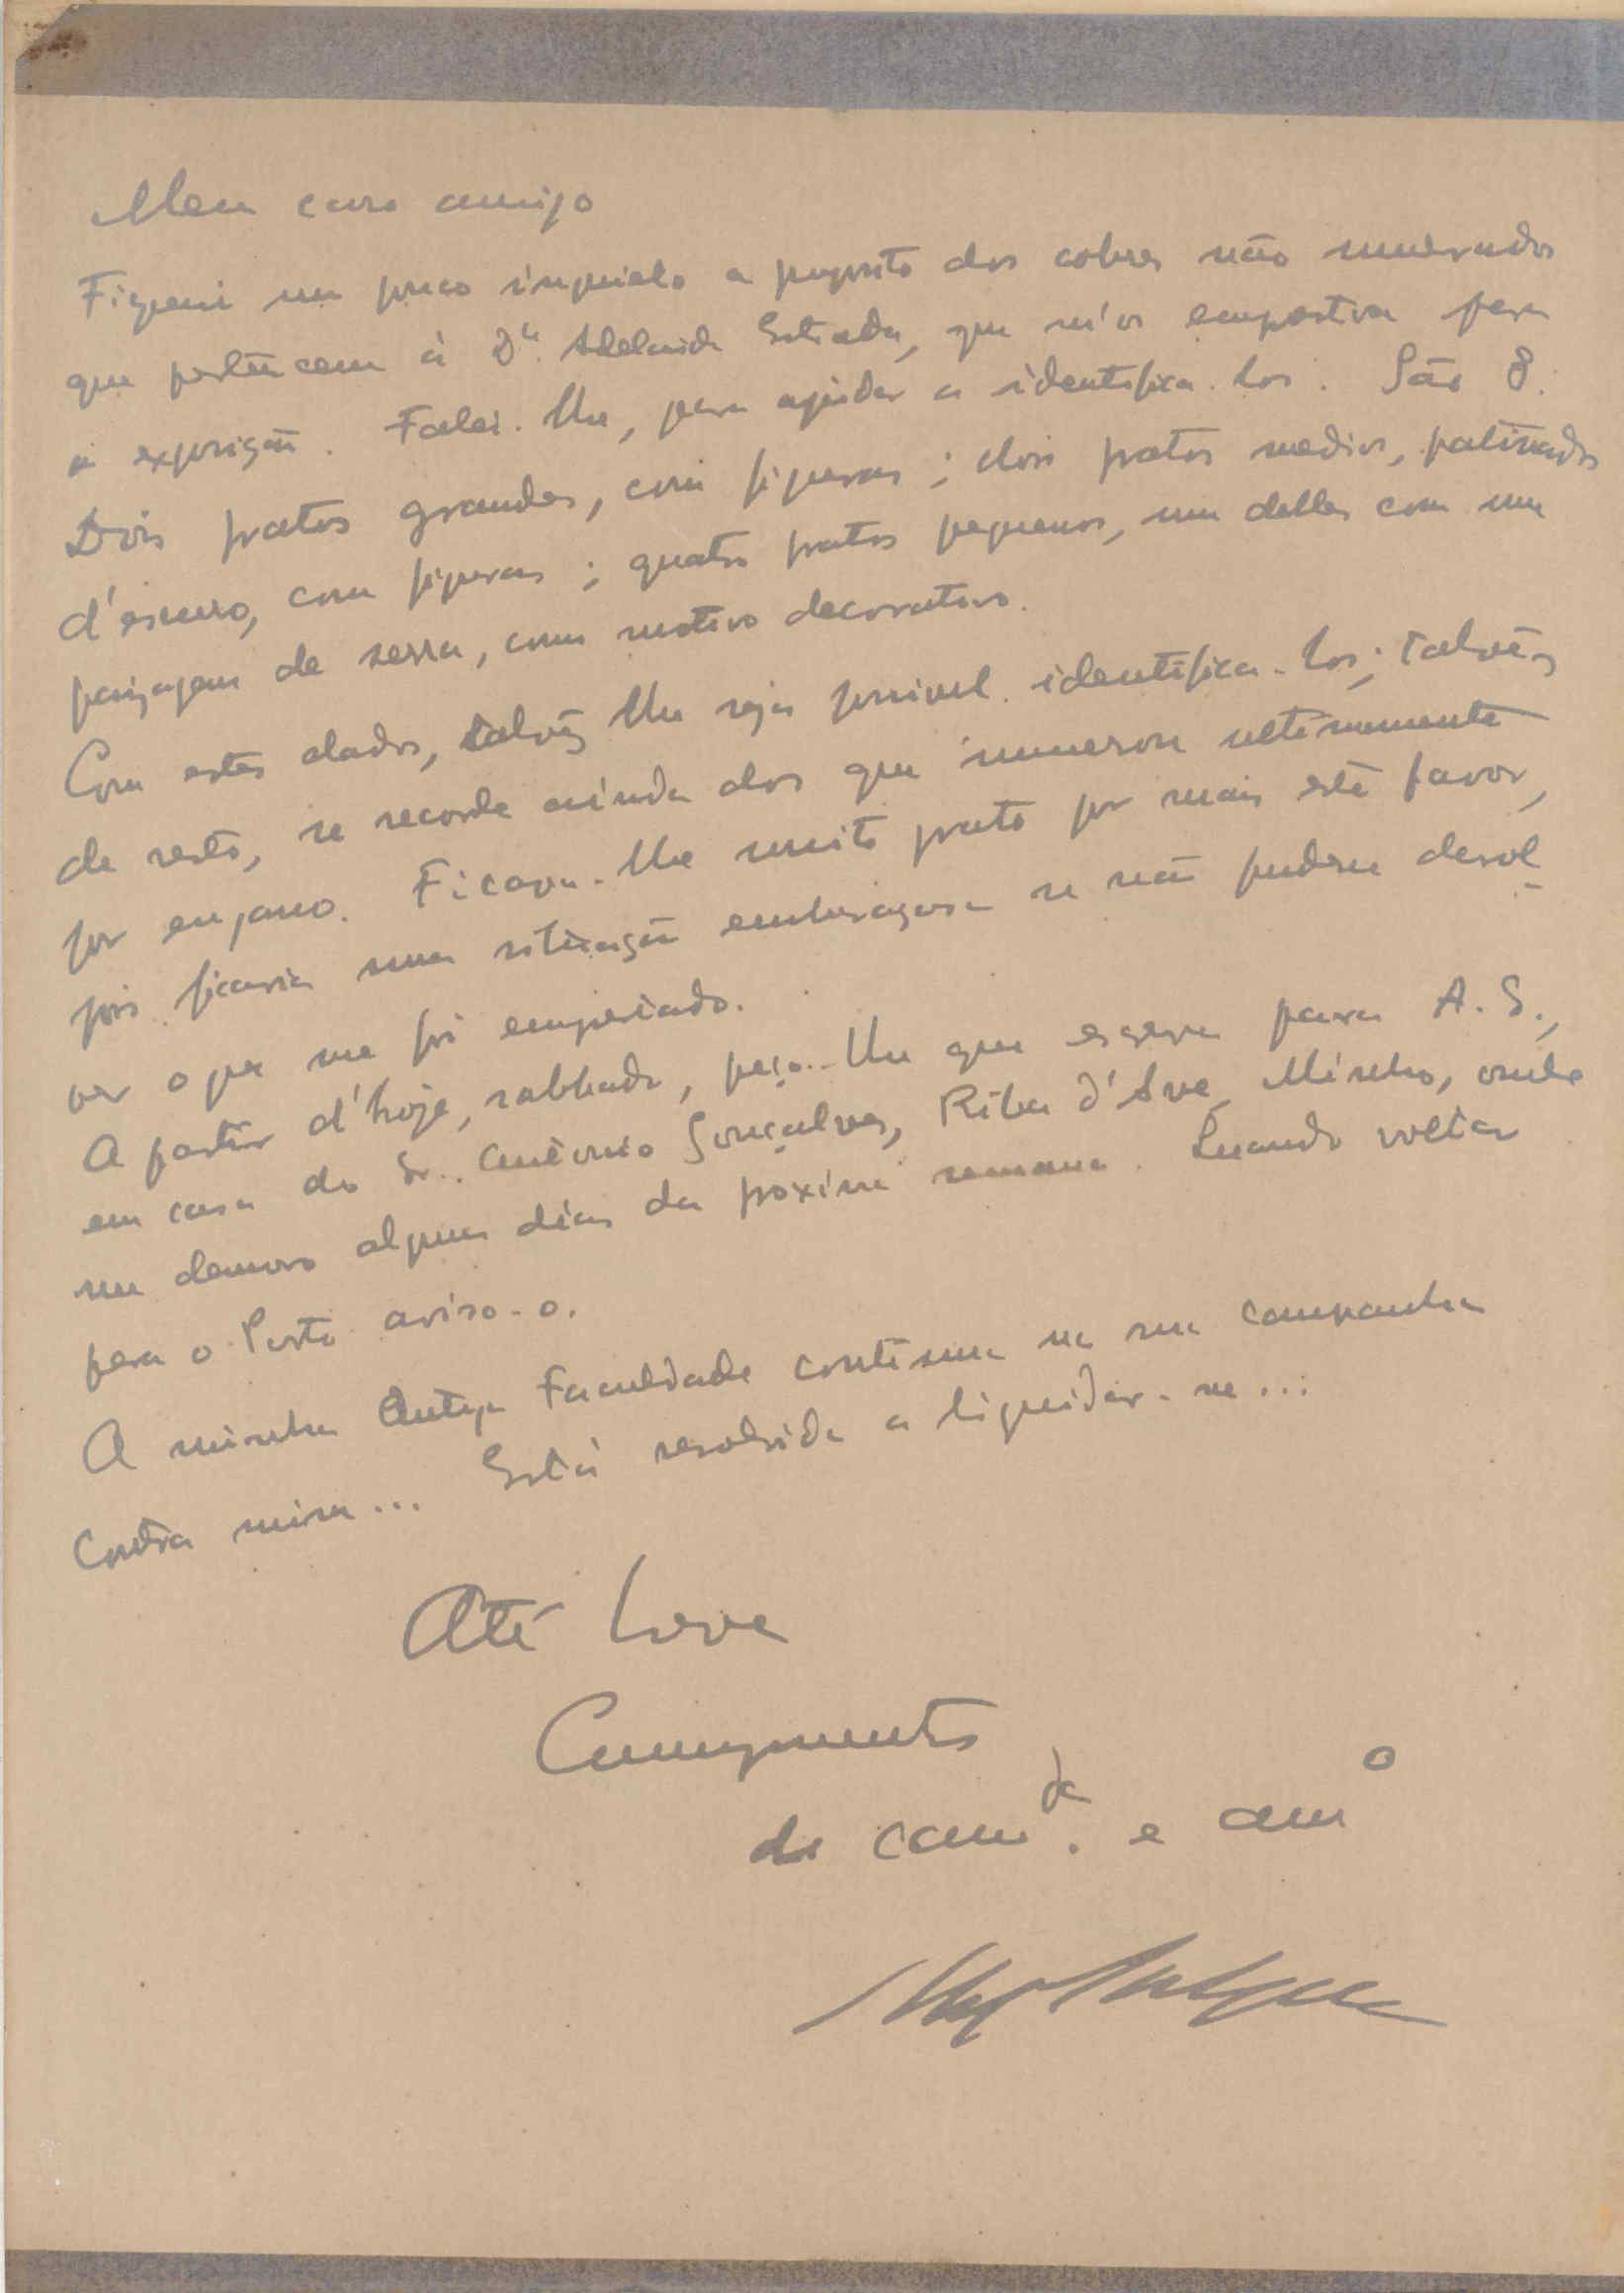 Meu caro amigo
Fiquei um pouco inquieto a proposito dos cobres não numerados
que pertencem à Dª. Adelaide Estrada, que m'os emprestou para
a exposição. Falei-lhe, para ajudar a identifica-los. São 8.
Dois pratos grandes, com figuras; dois pratos medios, patinados
d'escuro, com figuras; quatro pratos pequenos, um delles com uma
paizagem de serra, com motivo decorativo.
Com estes dados, talvêz lhe seja possivel identifica-los; talvêz
de resto, se recorde ainda dos que numerou ultimamente
por engano. Ficava-lhe muito grato por mais este favor,
pois ficaria numa situação embaraçosa se não pudesse devol-
ver o que me foi emprestado.
A partir d'hoje, sabbado, peço-lhe que escreva para A. S.,
em casa do Sr. António Gonçalves, Riba d'Ave, Minho, onde
me demoro alguns dias da proxima semana. Quando voltar
para o Porto aviso-o.
A minha antiga Faculdade continua na sua campanha
contra mim... Está resolvida a liquidar-me...
Até breve
Cumprimentos
do cam.da e am.o